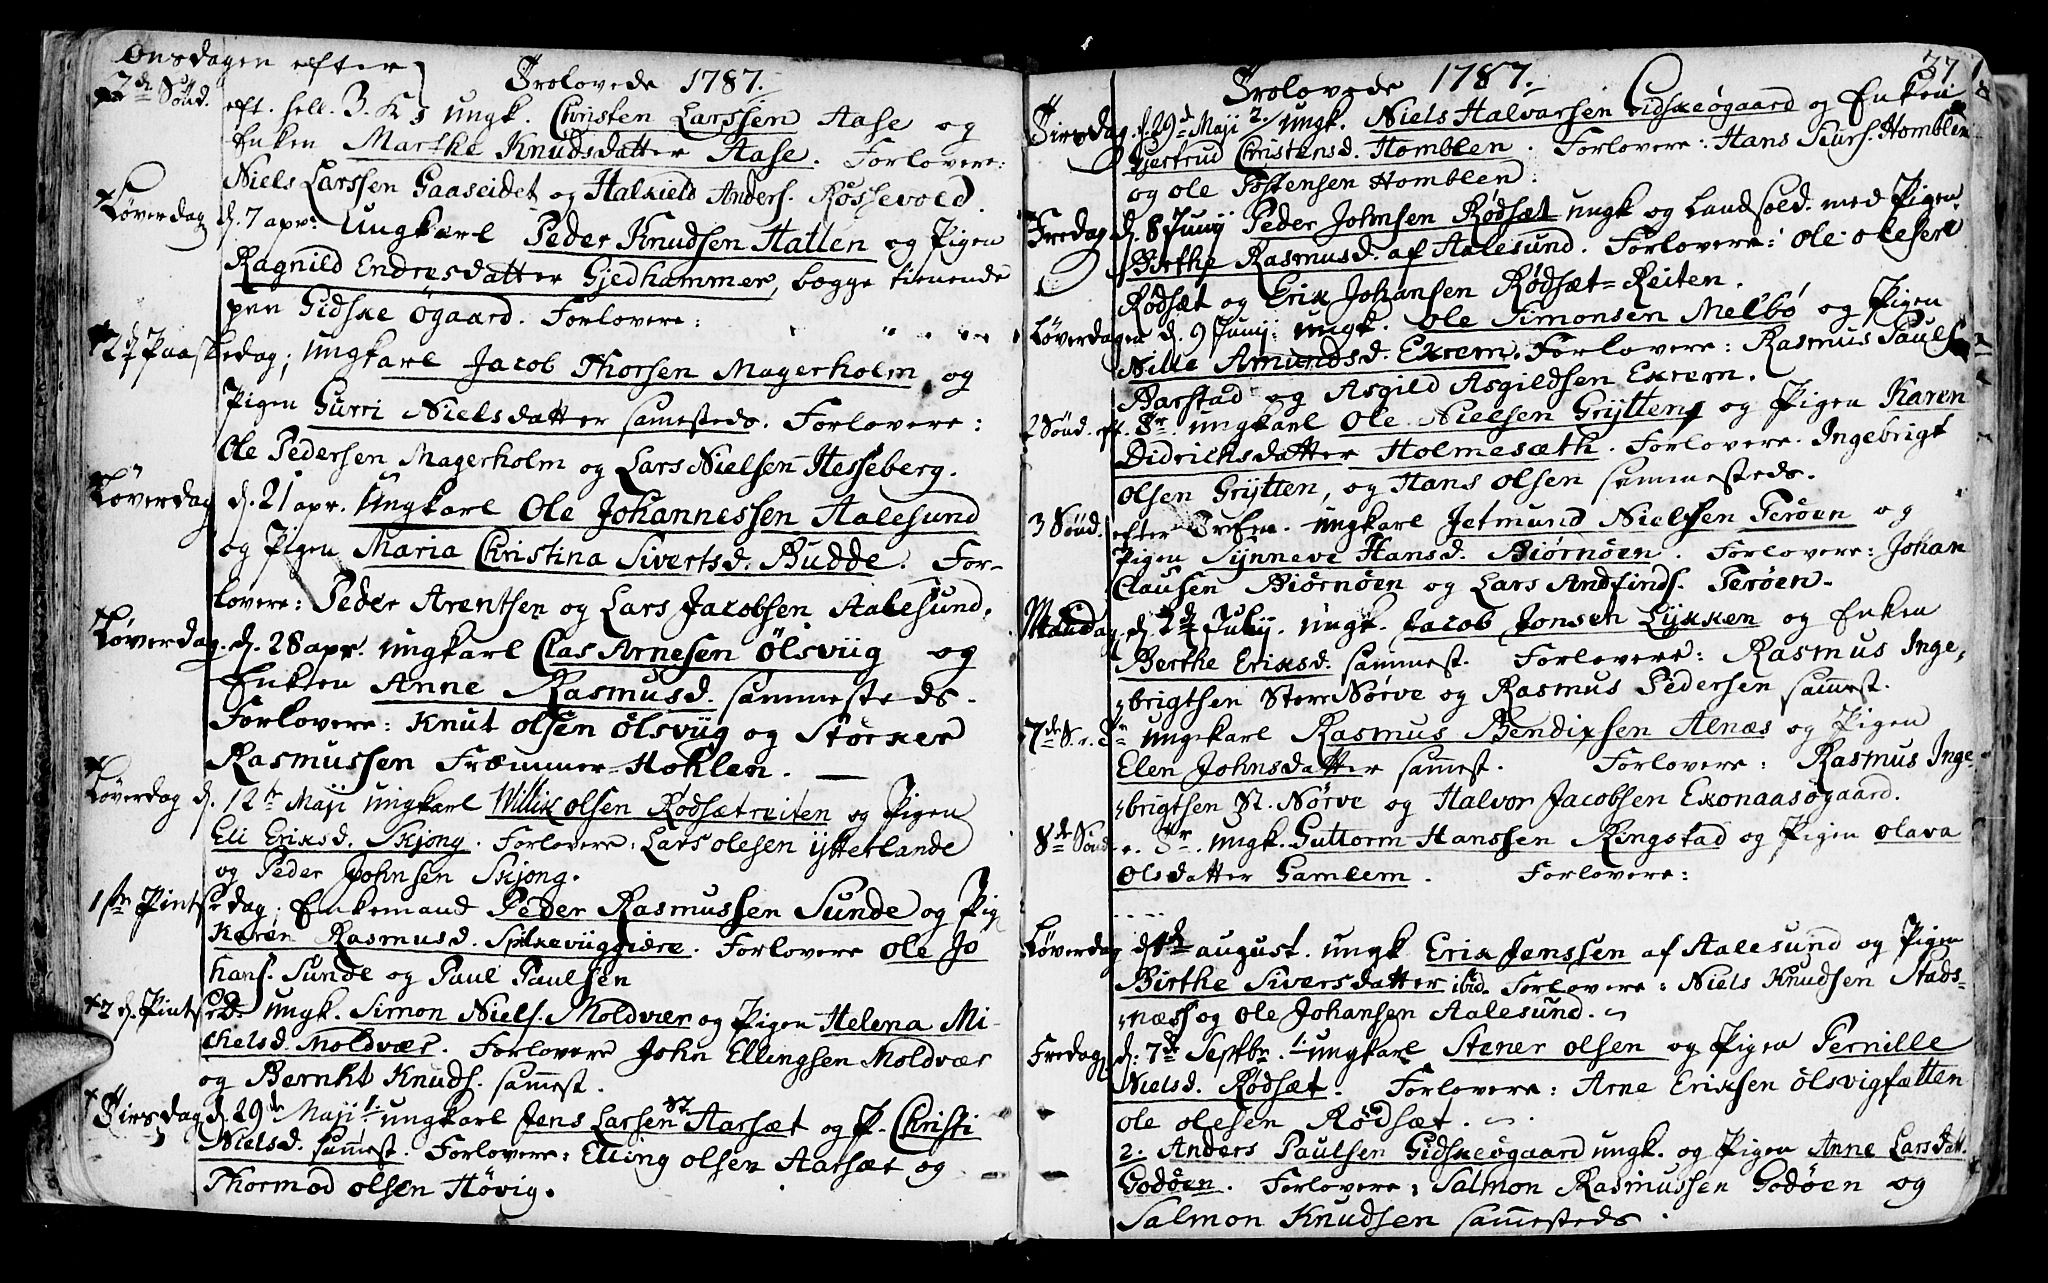 Onsdagen efter
Trolovede 1787.
2de Sönd. eft. hell. 3. K. ungk. Christen Larssen Aase og
Enken Marthe Knudsdatter Aase. Forlovere:
Niels Larssen Gaaseidet og Halkield Anders. Røssevold.
Løverdag d. 7 apr: Ungkarl Peder Knudsen Hatlen og Pigen
Ragnild Endresdatter Gjedhammer, bægge tienende
paa Gidske Øgaard. Forlovere:
2d. Paaskedag; ungkarl Jacob Thorsen Magerholm og
Pigen Gurri Nielsdatter sammesteds. Forlovere:
Ole Pedersen Magerholm og Lars Nielsen Hesseberg.
Løverdag d. 21 apr. Ungkarl Ole Johannessen Aalesund
og Pigen Maria Christina Sivertsd. Budde. For-
lovere: Peder Arentsen og Lars Jacobsen Aalesund.
Løverdag. d. 28 apr. ungkarl Clas Arnesen Ølsviig og
Enken Anne Rasmusd. sammesteds.
Forlovere: Knut Olsen Ølsviig og Størker
Rasmussen Fræmmer-Hohlen.
Løverdag d. 12te Maji ungkarl Willik Olsen Rødsætreiten og Pigen
Eli Eriksd. Skjong. Forlovere: Lars Olesen Ytterlande
og Peder Johnsen Skjong.
1ste Pintsedag; Enkemand Peder Rasmussen Sunde og Pig
Karen Rasmusd. Spikeviiggiære. Forlovere Ole Jo
hans. Sunde og Paul Paulsen
2 d. Pintsed. ungk. Simon Niels. Moldvær og Pigen Helena Mi-
chelsd. Moldvær. Forlovere John Ellingsen Moldvær
og Bernht Knuds. sammest.
Tirsdag d. 29de Maji 1. ungkarl Jens Larsen Aarsæt og P. Christi
Nielsd. sammest. Forlovere: Elling Olsen Aarsæt og
Thormod Olsen Høvig.
37
Trolovede 1787.
Tirsdag. d. 29d Maji 2. ungk. Niels Halvarsen Gidskeøgaard og Enken
Gjertrud Christensd. Homblen. Forlovere: Hans Siurs. Homblen
og Ole Tostensen Homblen.
Fredag d. 8 Junij Peder Johnsen Rødsæt ungk og Landsold. med Pigen
Birthe Rasmusd. af Aalesund. Forlovere: Ole Olesen
Rødsæt og Erik Johansen Rødsæt-Reiten.
Løverdagen d. 9 Junij. ungk. Ole Simonsen Melbø og Pigen
Nille Amundsd. Exrem. Forlovere: Rasmus Pauls
Barstad og Asgild Asgildsen Exrem.
2 Sönd. eft. Tr. ungkarl Ole Nielsen Gryttens og Pigen Karen
Didrichsdatter Holmesæth. Forlovere. Ingebrigt
Olsen Grytten, og Hans Olsen sammesteds.
3 Sönd. efter Trefn. ungkarl Jetmund Nielssen Perøen og
Pigen Synneve Hansd. Biørnøen. Forlovere: Johan
Clausen Biørnøen og Lars Andfinds. Perøen.
Mandag d. 2de July. ungk. Jacob Jonsen Lykken og Enken
Berthe Eriksd. sammest. Forlovere: Rasmus Inge,
brigtsen Store Nørve og Rasmus Pedersen sammest.
7de S. e. Tr ungkarl Rasmus Bendixsen Alnæs og Pigen
Elen Johnsdatter sammest. Forlovere: Rasmus Inge-
brigtsen St. Nørve og Halvor Jacobsen Exonaasøgaard.
8de Sönd e. Tr. ungk. Guttorm Hanssen Ringstad og Pigen Olava
Olsdatter Gamlem. Forlovere:
Løverdag august. ungk Erik Jenssen af Aalesund og Pigen
Birthe Siversdatter ibid. Forlovere: Niels Knudsen Stads-
næss og Ole Johansen Aalesund.
Fredag d. 7de Septbr. 1. ungkarl Stener Olsen og Pigen Pernille
Nielsd. Rødsæt. Forlovere: Arne Eriksen Ølsvigsætten
Ole Olesen Rødsæt.
2. Anders Paulsen Gidskeøgaard ungk. og Pigen Anne Larsdatt.
Godøen. Forlovere: Salmon Rasmussen Godøen og
Salmon Knudsen sammesteds.